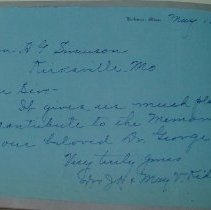 May 1
n. H. G. Swanson
Kirksville, Mo
Dear Sir -
It gives us much
contribute to the Memor
our beloved Dr. George
Very truly yours
Drs J. H. & May V